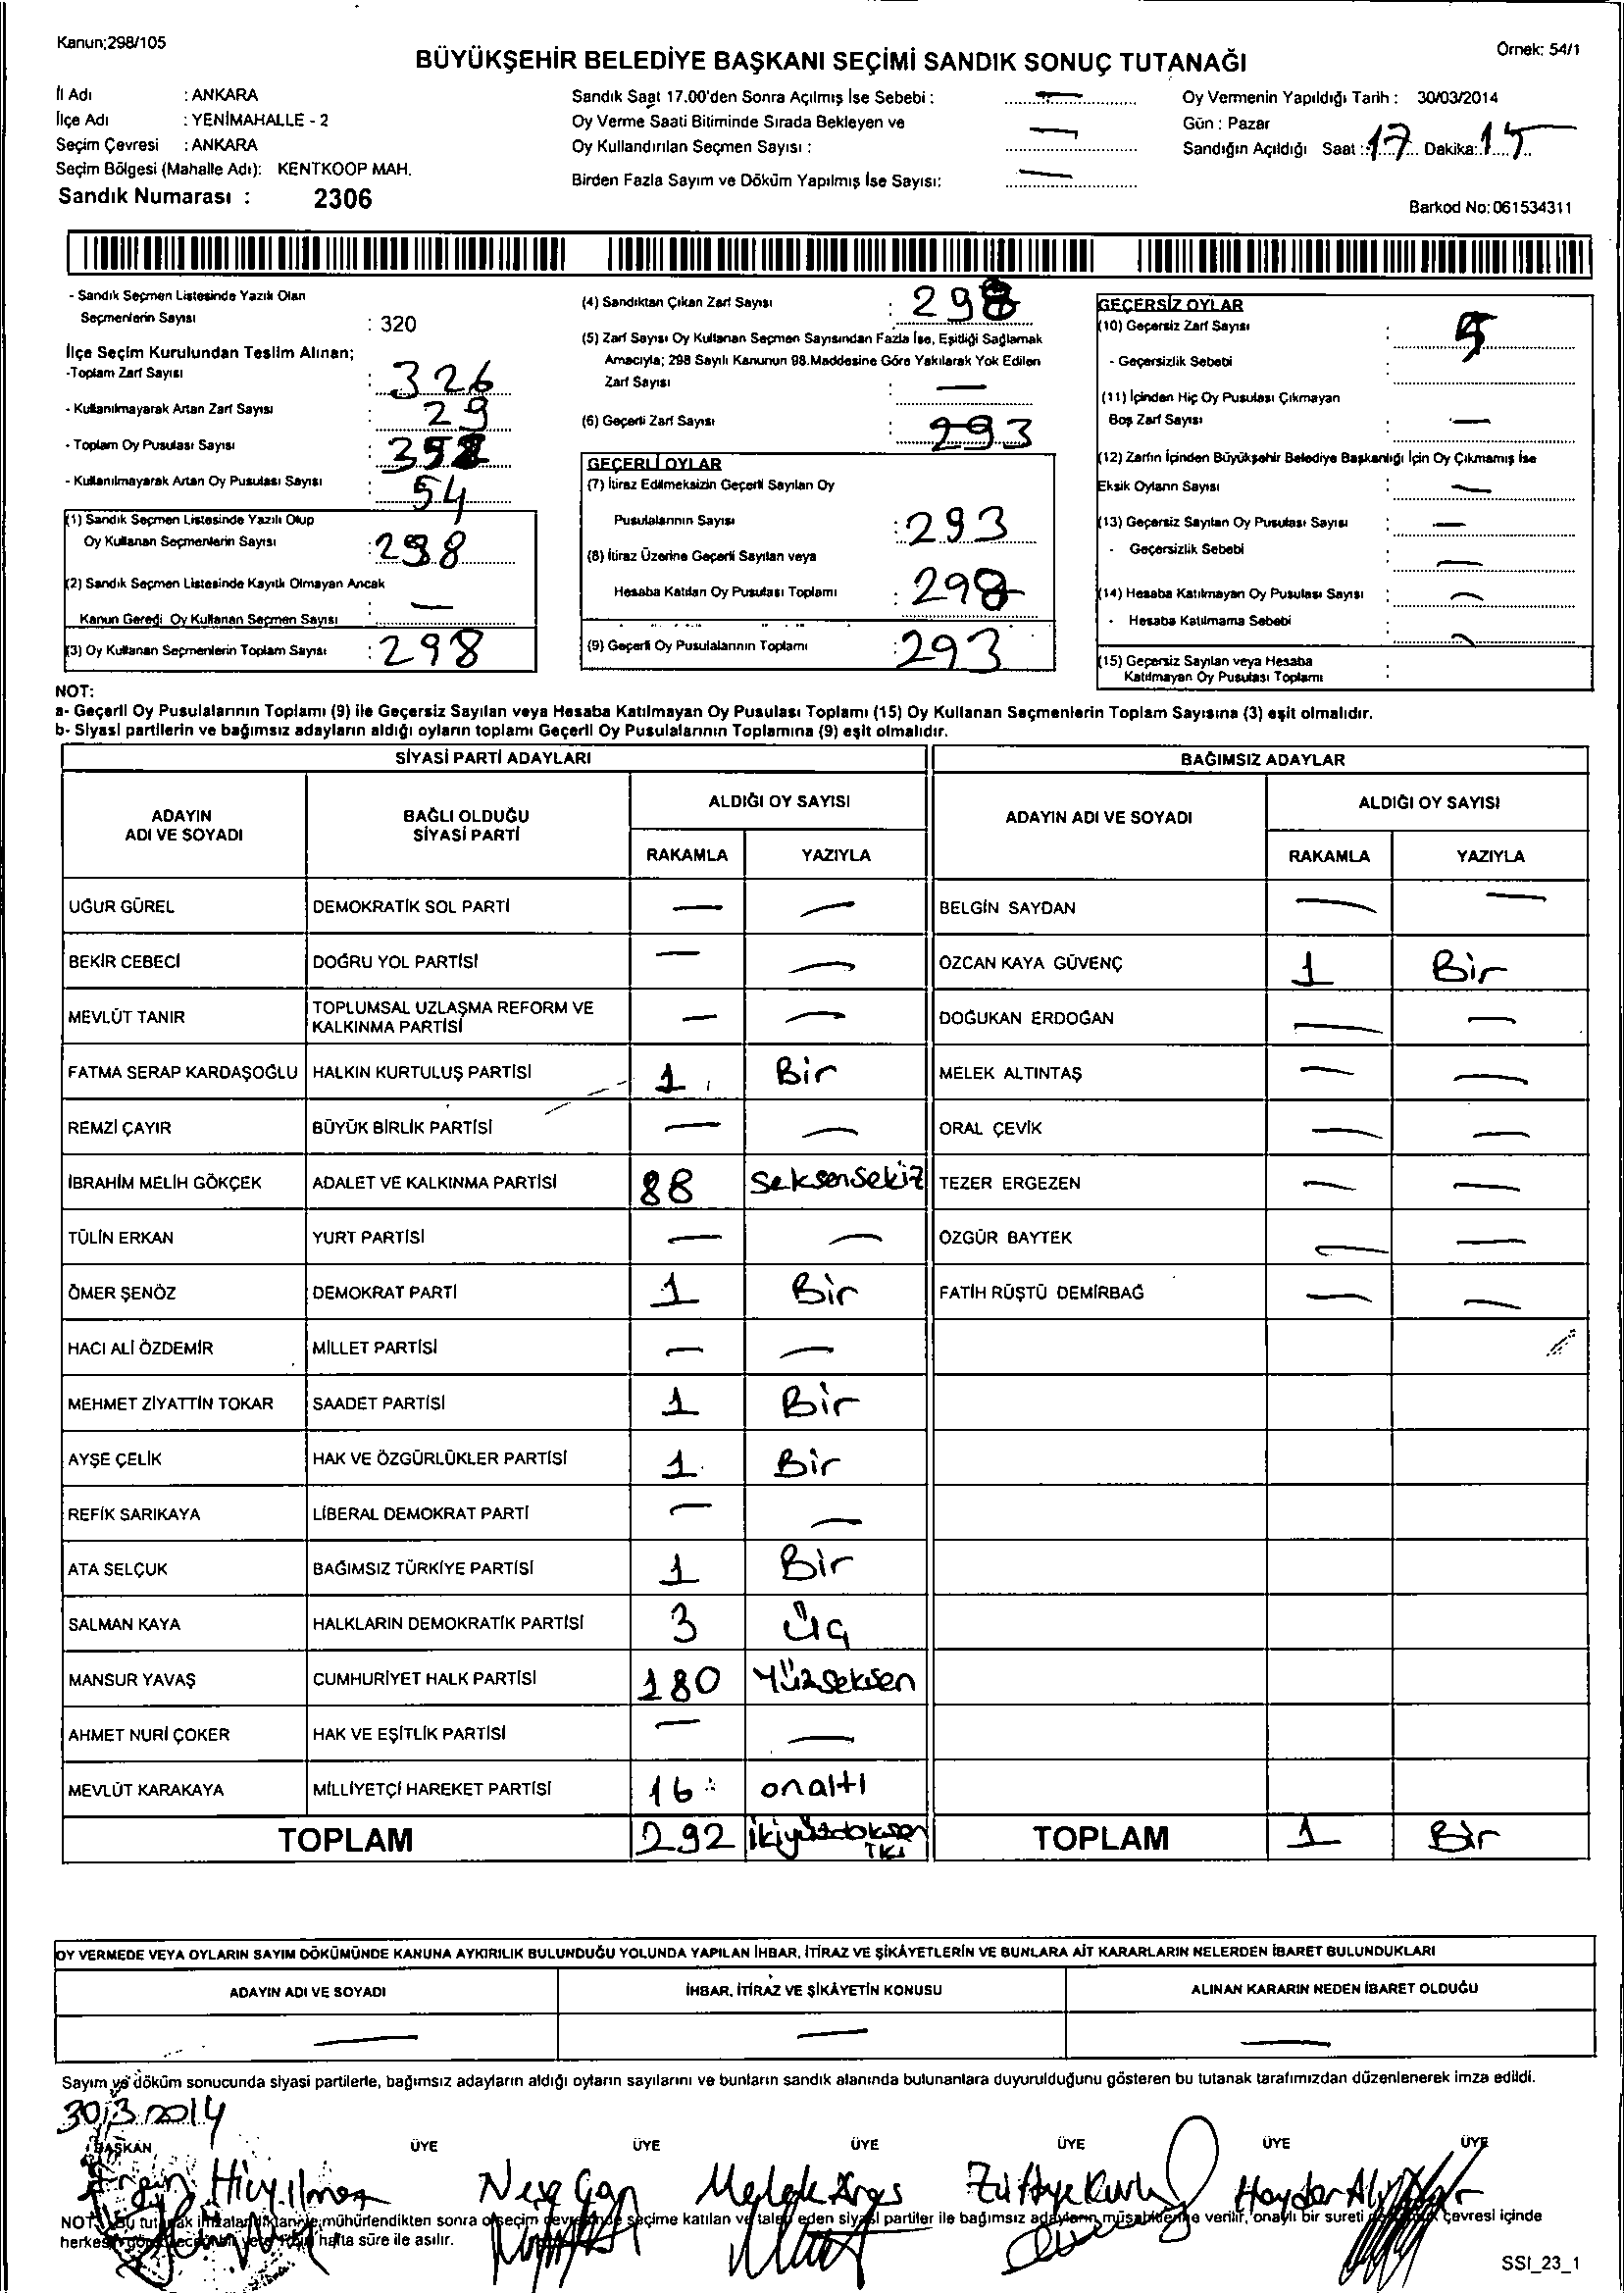 Kanun;298/105
Örnek: 54/1
BÜYÜKŞEHİR BELEDİYE BAŞKANI SEÇİMİ SANDIK SONUÇ TUTANAĞI
İl Adı : ANKARA
İlçe Adı : YENİMAHALLE - 2
Seçim Çevresi : ANKARA
Seçim Bölgesi (Mahalle Adı): KENTKOOP MAH.
Sandık Numarası : 2306
Sandık Saat 17.00'den Sonra Açılmış İse Sebebi : —
Oy Verme Saati Bitiminde Sırada Bekleyen ve
Oy Kullandırılan Seçmen Sayısı : —
Birden Fazla Sayım ve Döküm Yapılmış İse Sayısı: —
Oy Vermenin Yapıldığı Tarih : 30/03/2014
Gün : Pazar
Sandığın Açıldığı Saat : 17 Dakika: 15
Barkod No: 061534311
- Sandık Seçmen Listesinde Yazılı Olan
Seçmenlerin Sayısı : 320
İlçe Seçim Kurulundan Teslim Alınan;
-Toplam Zarf Sayısı : 326
- Kullanılmayarak Artan Zarf Sayısı : 29
- Toplam Oy Pusulası Sayısı :
- Kullanılmayarak Artan Oy Pusulası Sayısı : 54
(1) Sandık Seçmen Listesinde Yazılı Olup
Oy Kullanan Seçmenlerin Sayısı : 298
(2) Sandık Seçmen Listesinde Kayıtlı Olmayan Ancak
Kanun Gereği Oy Kullanan Seçmen Sayısı : —
(3) Oy Kullanan Seçmenlerin Toplam Sayısı : 298
(4) Sandıktan Çıkan Zarf Sayısı : 298
(5) Zarf Sayısı Oy Kullanan Seçmen Sayısından Fazla İse, Eşitliği Sağlamak
Amacıyla; 298 Sayılı Kanunun 98.Maddesine Göre Yakılarak Yok Edilen
Zarf Sayısı : —
(6) Geçerli Zarf Sayısı : 293
GEÇERLİ OYLAR
(7) İtiraz Edilmeksizin Geçerli Sayılan Oy
Pusulalarının Sayısı : 293
(8) İtiraz Üzerine Geçerli Sayılan veya
Hesaba Katılan Oy Pusulası Toplamı : 298
(9) Geçerli Oy Pusulalarının Toplamı : 293
GEÇERSİZ OYLAR
(10) Geçersiz Zarf Sayısı : 5
- Geçersizlik Sebebi :
(11) İçinden Hiç Oy Pusulası Çıkmayan
Boş Zarf Sayısı : —
(12) Zarfın İçinden Büyükşehir Belediye Başkanlığı İçin Oy Çıkmamış İse
Eksik Oyların Sayısı : —
(13) Geçersiz Sayılan Oy Pusulası Sayısı : —
- Geçersizlik Sebebi : —
(14) Hesaba Katılmayan Oy Pusulası Sayısı : —
- Hesaba Katılmama Sebebi : —
(15) Geçersiz Sayılan veya Hesaba
Katılmayan Oy Pusulası Toplamı :
NOT:
a- Geçerli Oy Pusulalarının Toplamı (9) ile Geçersiz Sayılan veya Hesaba Katılmayan Oy Pusulası Toplamı (15) Oy Kullanan Seçmenlerin Toplam Sayısına (3) eşit olmalıdır.
b- Siyasi partilerin ve bağımsız adayların aldığı oyların toplamı Geçerli Oy Pusulalarının Toplamına (9) eşit olmalıdır.
SİYASİ PARTİ ADAYLARI
ADAYIN ADI VE SOYADI BAĞLI OLDUĞU SİYASİ PARTİ ALDIĞI OY SAYISI
RAKAMLA YAZIYLA
UĞUR GÜREL DEMOKRATİK SOL PARTİ — —
BEKİR CEBECİ DOĞRU YOL PARTİSİ — —
MEVLÜT TANIR TOPLUMSAL UZLAŞMA REFORM VE KALKINMA PARTİSİ — —
FATMA SERAP KARDAŞOĞLU HALKIN KURTULUŞ PARTİSİ 1 Bir
REMZİ ÇAYIR BÜYÜK BİRLİK PARTİSİ — —
İBRAHİM MELİH GÖKÇEK ADALET VE KALKINMA PARTİSİ 88 seksensekiz
TÜLİN ERKAN YURT PARTİSİ — —
ÖMER ŞENÖZ DEMOKRAT PARTİ 1 Bir
HACI ALİ ÖZDEMİR MİLLET PARTİSİ — —
MEHMET ZİYATTİN TOKAR SAADET PARTİSİ 1 Bir
AYŞE ÇELİK HAK VE ÖZGÜRLÜKLER PARTİSİ 1 Bir
REFİK SARIKAYA LİBERAL DEMOKRAT PARTİ — —
ATA SELÇUK BAĞIMSIZ TÜRKİYE PARTİSİ 1 Bir
SALMAN KAYA HALKLARIN DEMOKRATİK PARTİSİ 3 Üç
MANSUR YAVAŞ CUMHURİYET HALK PARTİSİ 180 Yüzseksen
AHMET NURİ ÇOKER HAK VE EŞİTLİK PARTİSİ — —
MEVLÜT KARAKAYA MİLLİYETÇİ HAREKET PARTİSİ 16 onaltı
TOPLAM 292 ikiyüzdoksan iki
BAĞIMSIZ ADAYLAR
ADAYIN ADI VE SOYADI ALDIĞI OY SAYISI
RAKAMLA YAZIYLA
BELGİN SAYDAN — —
ÖZCAN KAYA GÜVENÇ 1 Bir
DOĞUKAN ERDOĞAN — —
MELEK ALTINTAŞ — —
ORAL ÇEVİK — —
TEZER ERGEZEN — —
ÖZGÜR BAYTEK — —
FATİH RÜŞTÜ DEMİRBAĞ — —
TOPLAM 1 Bir
OY VERMEDE VEYA OYLARIN SAYIM DÖKÜMÜNDE KANUNA AYKIRILIK BULUNDUĞU YOLUNDA YAPILAN İHBAR, İTİRAZ VE ŞİKÂYETLERİN VE BUNLARA AİT KARARLARIN NELERDEN İBARET BULUNDUKLARI
ADAYIN ADI VE SOYADI İHBAR, İTİRAZ VE ŞİKÂYETİN KONUSU ALINAN KARARIN NEDEN İBARET OLDUĞU
— — —
Sayım ve döküm sonucunda siyasi partilerle, bağımsız adayların aldığı oyların sayılarını ve bunların sandık alanında bulunanlara duyurulduğunu gösteren bu tutanak tarafımızdan düzenlenerek imza edildi.
30/3.2014
BAŞKAN ÜYE ÜYE ÜYE ÜYE ÜYE ÜYE
Melek Haydar
NOT: Bu tutanak imzalandıktan ve mühürlendikten sonra o seçim çevresinde seçime katılan ve talep eden siyasi partiler ile bağımsız adayların müşahitlerine verilir, onaylı bir sureti çevresi içinde
herkesin hafta süre ile asılır.
SSI_23_1